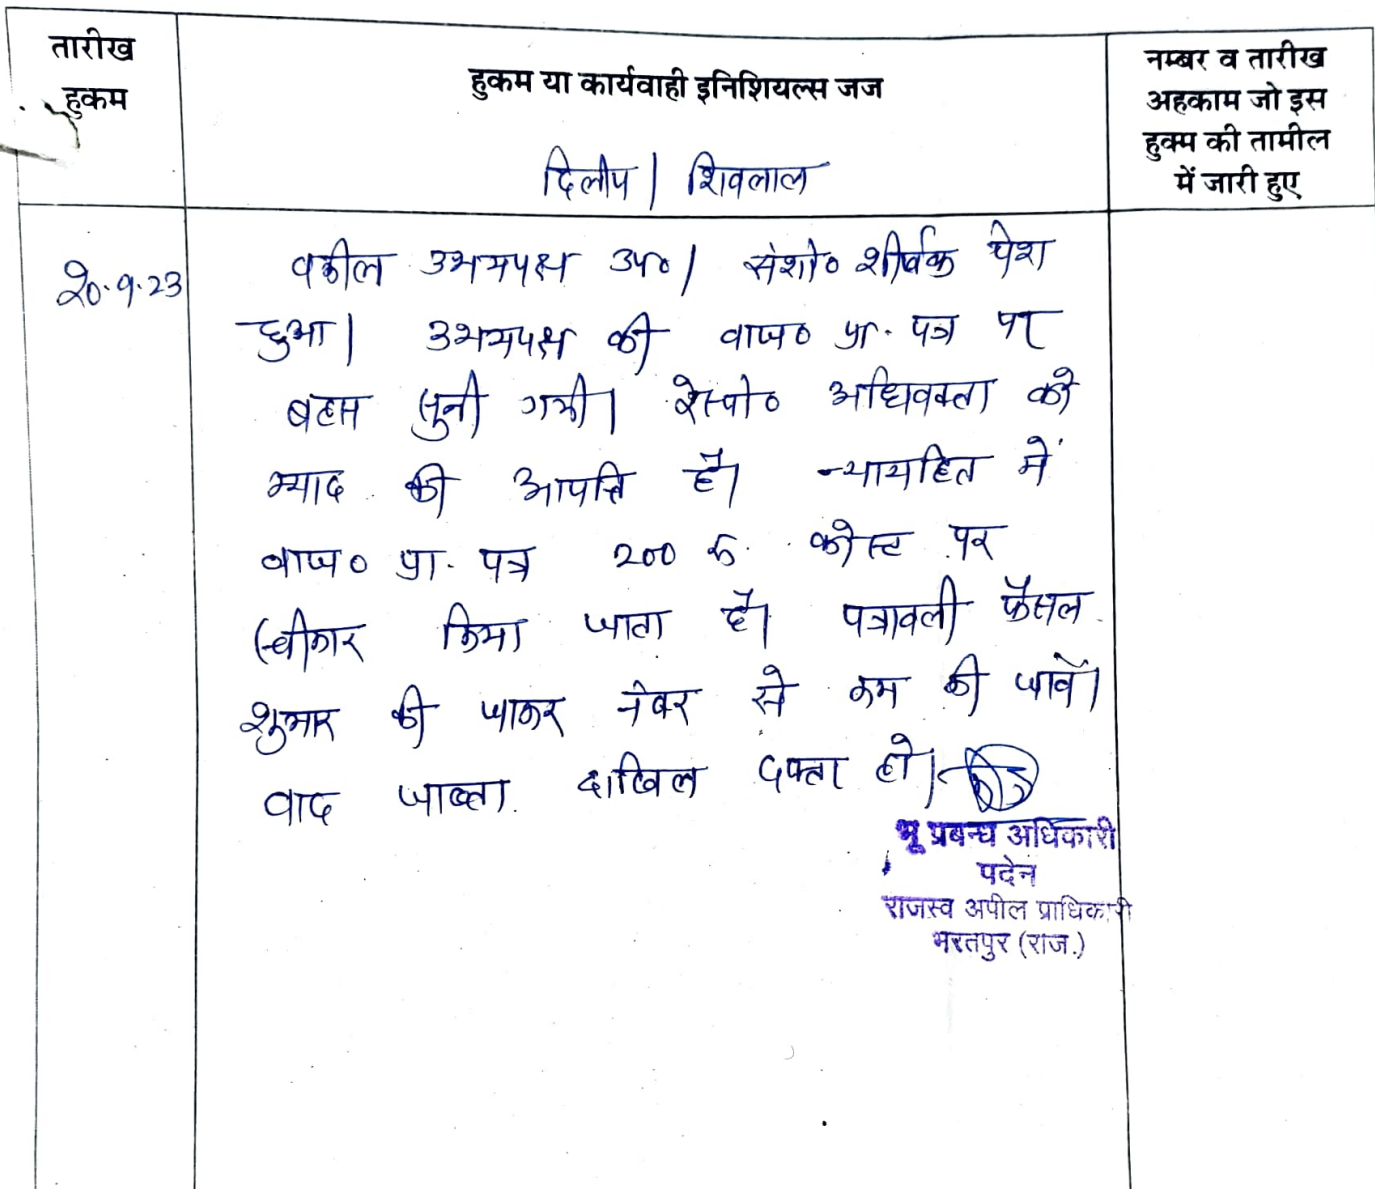 तारीख
हुकम
हुकम या कार्यवाही इनिशियल्स जज
नम्बर व तारीख
अहकाम जो इस
हुक्म की तामील
में जारी हुए
दिलीप | शिवलाल
20.9.23
वकील उभयपक्ष उप०। संशो० शीर्षक पेश
हुआ। उभयपक्ष की वाज० प्रा. पत्र पर
बहस सुनी गयी। रेस्पो० अधिवक्ता को
म्याद की आपत्ति है। न्यायहित में
वाज० प्रा. पत्र 200 रु. कोस्ट पर
स्वीकार किया जाता है। पत्रावली फैसल
शुमार की जाकर नंबर से कम की जावें।
वाद जाब्ता दाखिल दफ्तर हो।
भू प्रबन्ध अधिकारी
पदेन
राजस्व अपील प्राधिकारी
भरतपुर (राज.)